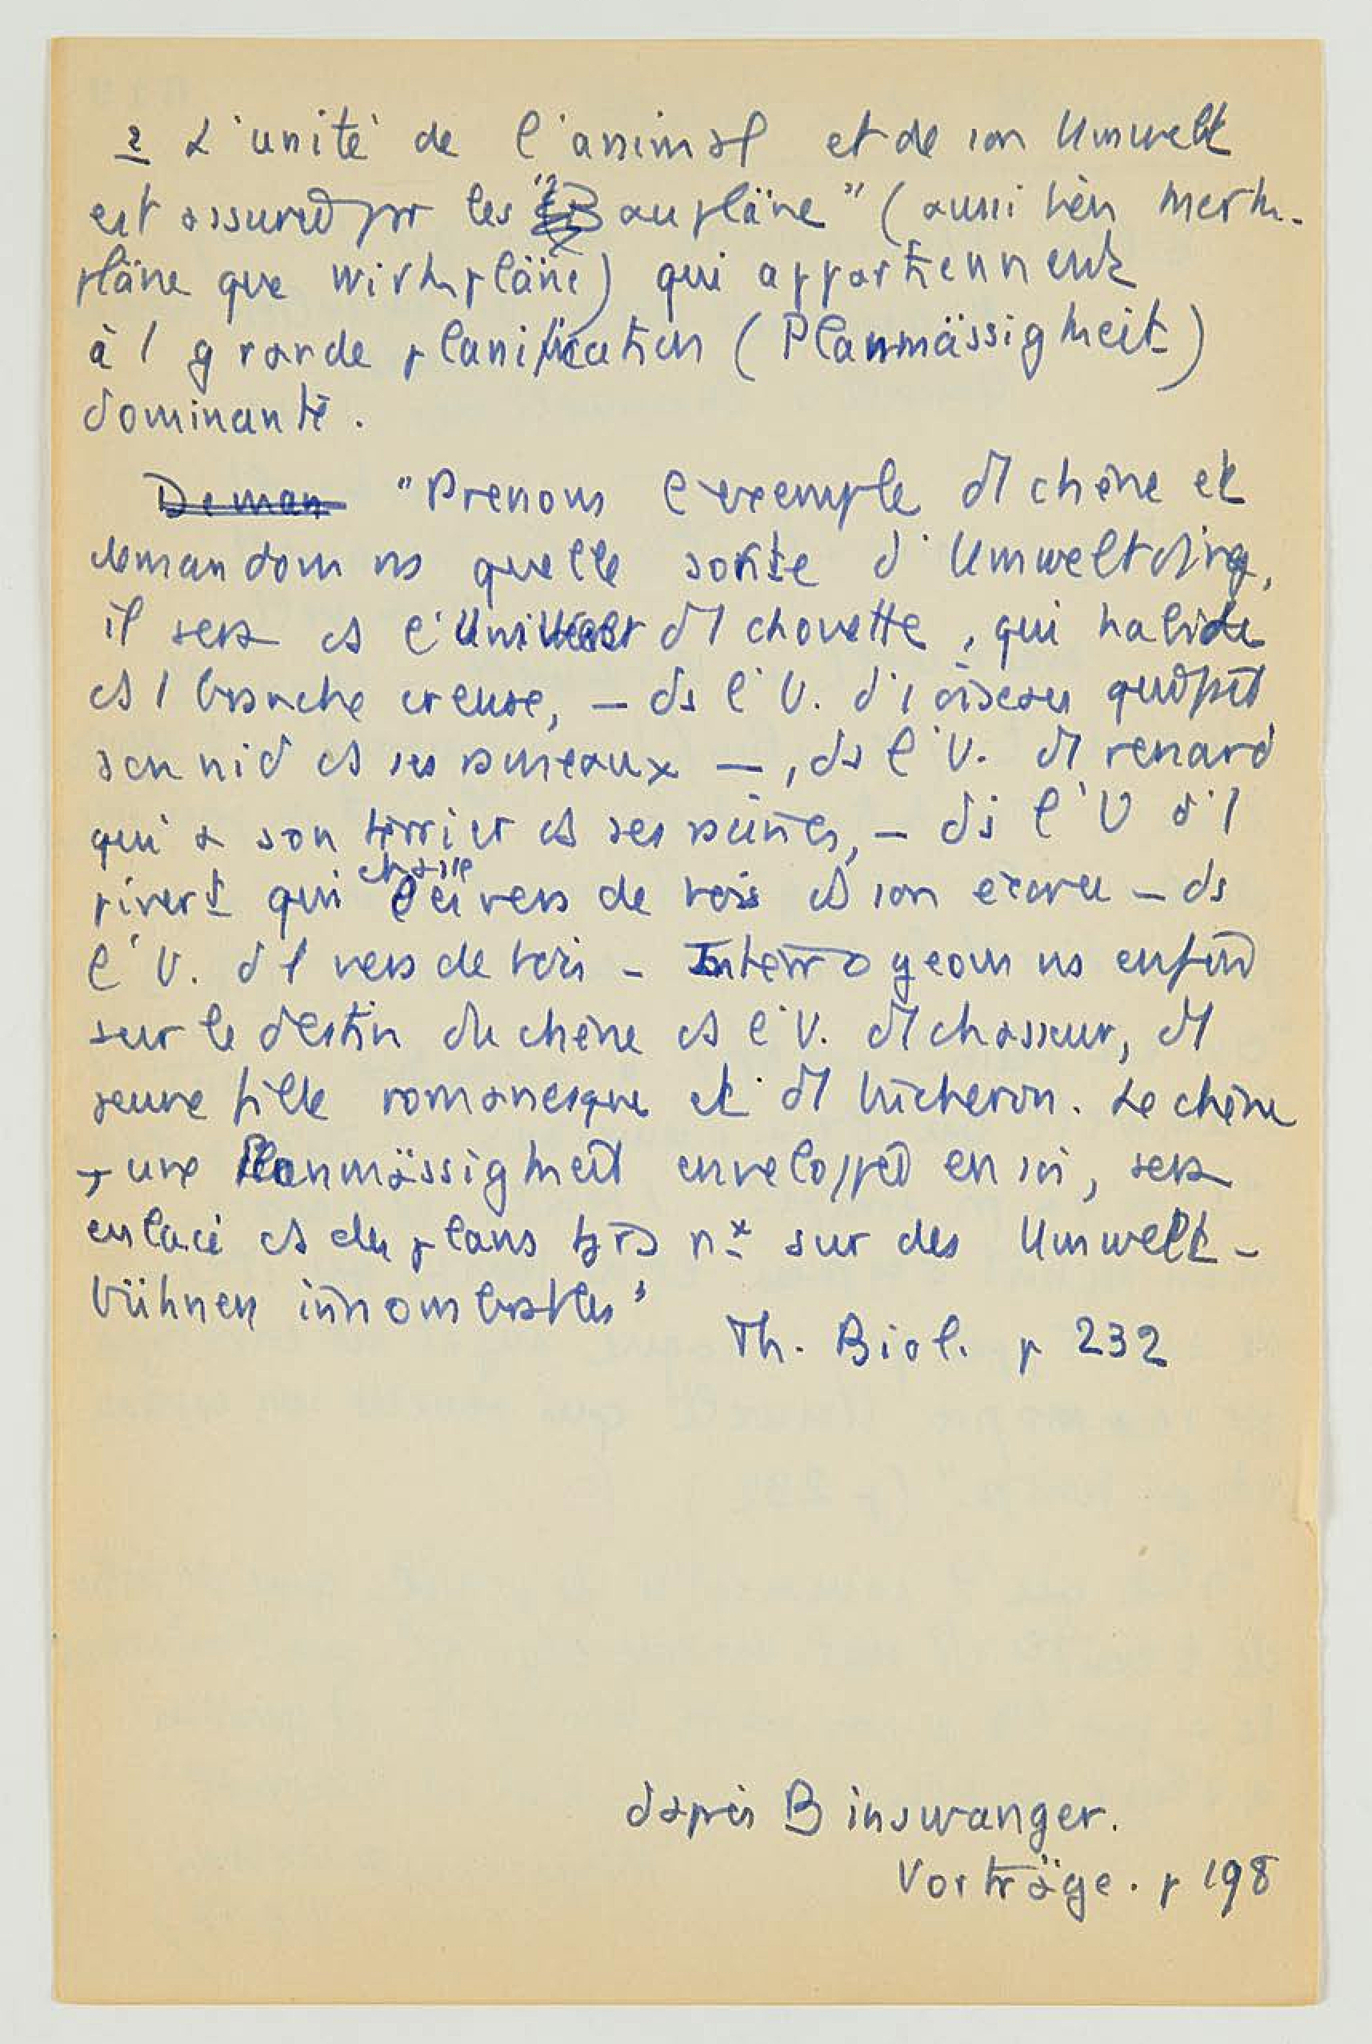 2 L'unité de l'animal et de son Umwelt
est assurée par les "Baupläne" (aussi bien Merk-
pläne que Wirkpläne) qui appartiennent
à 1 grande planification (Planmässigkeit)
dominante.
Deman "Prenons l'exemple d'1 chêne et
demandons ns quelle sorte d'Umweltding,
il sera ds l'Umwelt d'1 chouette, qui habite
ds 1 branche creuse, – ds l'U. d'1 oiseau qui fait
son nid ds ses rameaux –, ds l'U. d'1 renard
qui a son terrier ds ses racines, – ds l'U d'1
pivert qui chasse vers de bois ds son écorce – ds
l'U. d'1 vers de bois – Interrogeons ns enfin
sur le destin du chêne ds l'U. d'1 chasseur, d'1
jeune fille romanesque et d'1 bûcheron. Le chêne
, une Planmässigkeit enveloppée en soi, sera
enlacé ds des plans tjrs nx sur des Umwelt-
bühnen innombrables"
Th. Biol. p 232
d'après Binswanger.
Vorträge. p 198